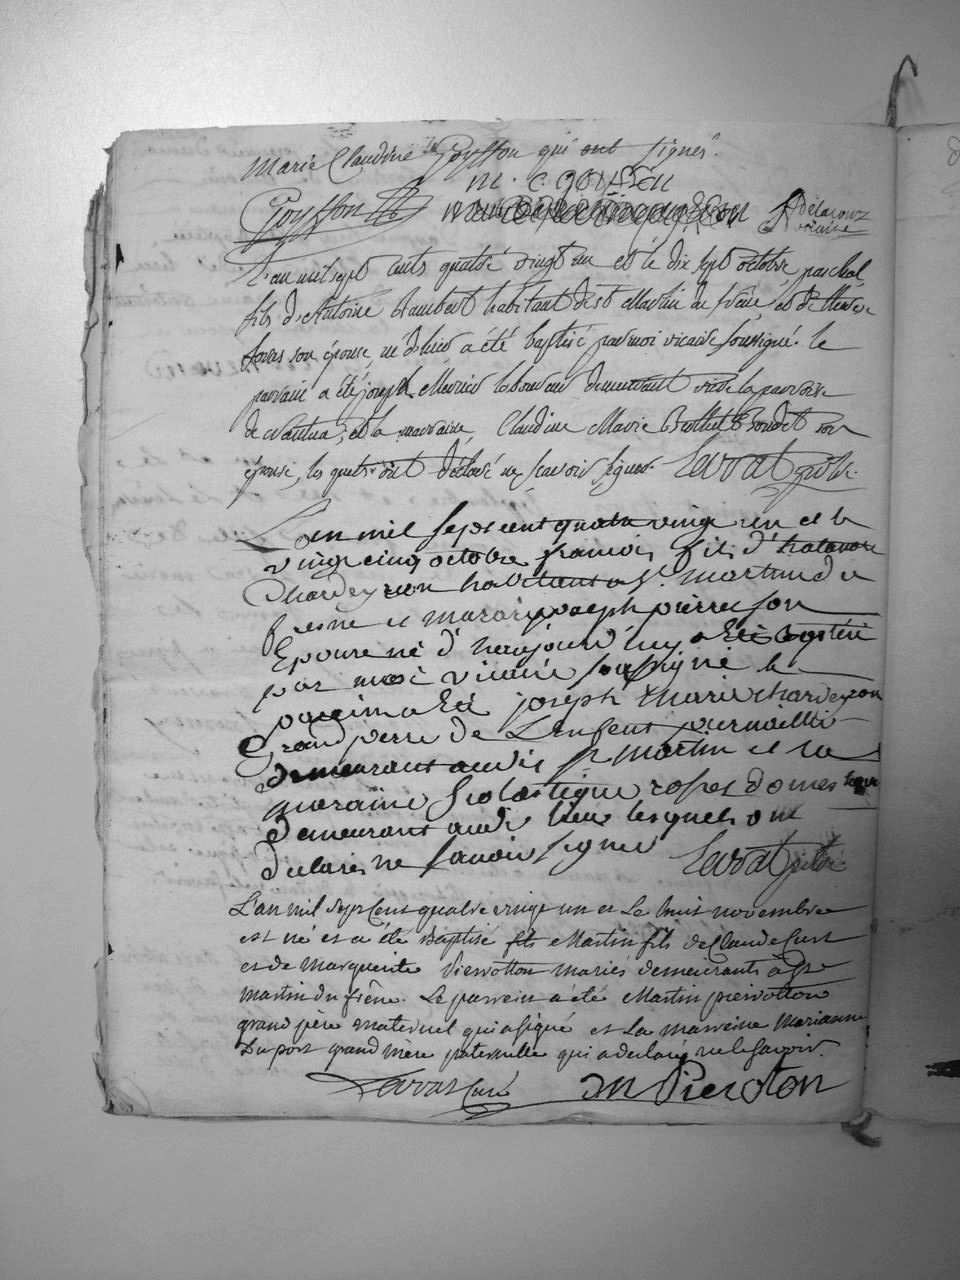 Marie Claudine Goyffon qui ont signés.
m. c. goiffon
Goyffon Delacour vicaire
L'an mil sept cents quatre vingt un et le dix sept octobre, paschal
fils d'Antoine Humbert habitant de st Martin du frêne, et de
son épouse, né d'hier a été baptisé par moi vicaire soussigné. le
parrain a été joseph Marie laboureur demeurant rière la paroisse
de Nantua, et la marraine, Claudine Marie Bondet son
épouse, les quels ont déclaré ne scavoir signer. Levrat
L'an mil sept cent quatre vingt un et le
vingt cinq octobre francois fils d'
Chardeyron habitant a st martin du
fresne et marie joseph pierre son
Epouse né d'haujourd'huy a été baptisé
par moi vicaire soussigné le
parrin a Eté joseph Marie Chardeyron
Grand perre de L'enfent journallié
demeurant audit st martin et sa
maraine Scolastique domes
demeurant audit lieu lesquels ont
declarés ne savoir signer Levrat
L'an mil sept Cent quatre vingt un et Le huit novembre
est né et a été Baptisé Martin fils de Claude Curt
et de Marguerite Pierrotton mariés demeurants à St
Martin du frêne. Le parrein a été Martin pierrotton
grand père maternel qui a signé et La marreine Marianne
Du port grand mère paternelle qui a declaré ne le savoir.
Levrat Curé m Pieroton